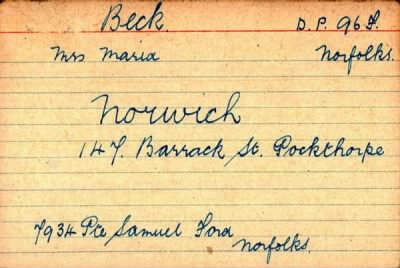 Beck. D.P. 96 F.
Mrs Maria Norfolks.
Norwich
147. Barrack St. Pockthorpe
7934 Pte Samuel Ford
Norfolks.